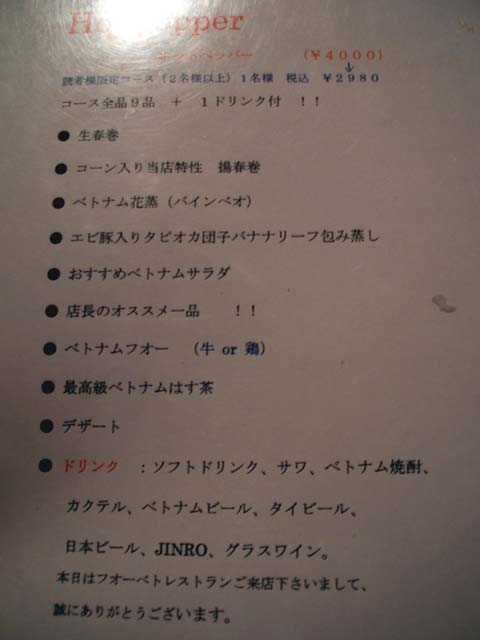 Hot Pepper
ホットペッパー (￥4000)
↓
読者様限定コース(2名様以上)1名様 税込 ￥2980
コース全品9品 + 1ドリンク付 !!
● 生春巻
● コーン入り当店特性 揚春巻
● ベトナム花蒸(バインベオ)
● エビ豚入りタピオカ団子バナナリーフ包み蒸し
● おすすめベトナムサラダ
● 店長のオススメ一品 !!
● ベトナムフオー (牛 or 鶏)
● 最高級ベトナムはす茶
● デザート
● ドリンク :ソフトドリンク、サワ、ベトナム焼酎、
カクテル、ベトナムビール、タイビール、
日本ビール、JINRO、グラスワイン。
本日はフオーベトレストランご来店下さいまして、
誠にありがとうございます。